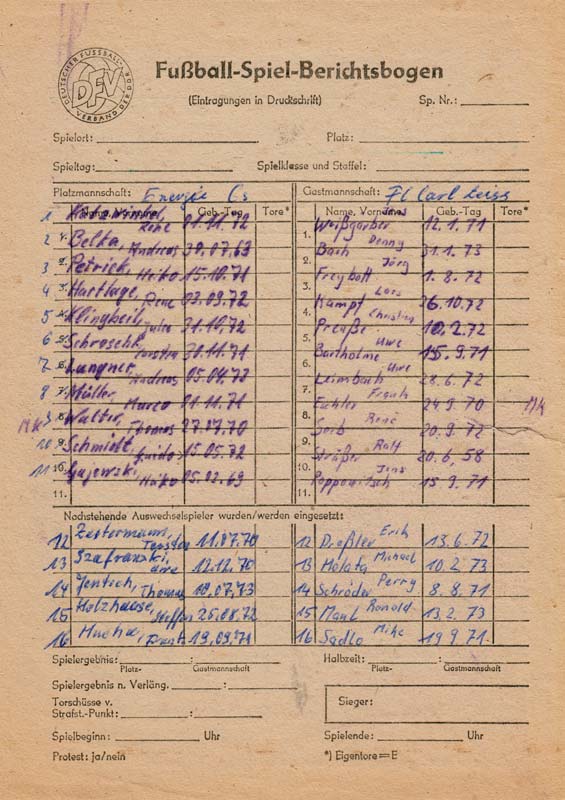 DEUTSCHER FUSSBALL-VERBAND DER DDR
DFV
Fußball-Spiel-Berichtsbogen
(Eintragungen in Druckschrift) Sp. Nr.:
Spielort: Platz:
Spieltag: Spielklasse und Staffel:
Platzmannschaft: Energie Cs Gastmannschaft: FC Carl Zeiss
Name, Vorname Geb.-Tag Tore* Name, Vorname Geb.-Tag Tore*
1 René 01.11.72 1. Weißgerber Jens 12.1.71
2 Belka, Andreas 30.07.63 2. Bach Denny 31.1.73
3 Petrick, Heiko 15.10.71 3. Freybott Jörg 1.8.72
4 Hartlage, Rene 03.09.72 4. Kampf Lars 26.10.72
5 Klingbeil, 31.10.72 5. Preuße Christian 10.2.72
6 Schroschk, Torsten 30.11.71 6. Bartholme Uwe 15.9.71
7 Langner, Andreas 05.04.73 Leimbach Uwe 28.6.72
8 Müller, Marco 01.11.71 7. Eichler Frank 24.9.70 MK
MK 9 Walter, Thomas 27.07.70 8. Sorb René 20.9.72
10 Schmidt, Guido 15.05.72 9. Sträßer Ralf 20.6.58
11 Gajewski, Heiko 05.02.69 10. Poppowitsch Jens 15.9.71
11. 11.
Nachstehende Auswechselspieler wurden/werden eingesetzt:
12 Zestermann, 11.07.70 12 Dreßler Erik 13.6.72
13 Szafranski, 12.12.70 13 Molata Michael 10.2.73
14 Jentsch, Thomas 10.07.73 14 Schröder Perry 8.8.71
15 Holzhause, Steffen 25.08.72 15 Maul Ronald 13.2.73
16 19.09.71 16 Sadlo Mike 19.9.71
Spielergebnis: : Halbzeit: :
Platz- Gastmannschaft Platz- Gastmannschaft
Spielergebnis n. Verläng. :
Torschüsse v.
Strafst.-Punkt: : Sieger:
Spielbeginn: Uhr Spielende: Uhr
Protest: ja/nein *) Eigentore=E